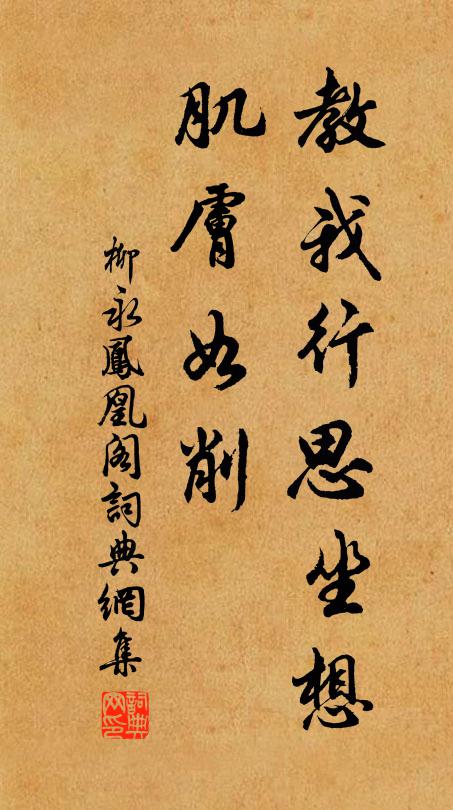 教我行思坐想
肌膚如削
柳永鳳凰閣詞典網集
詞典网印